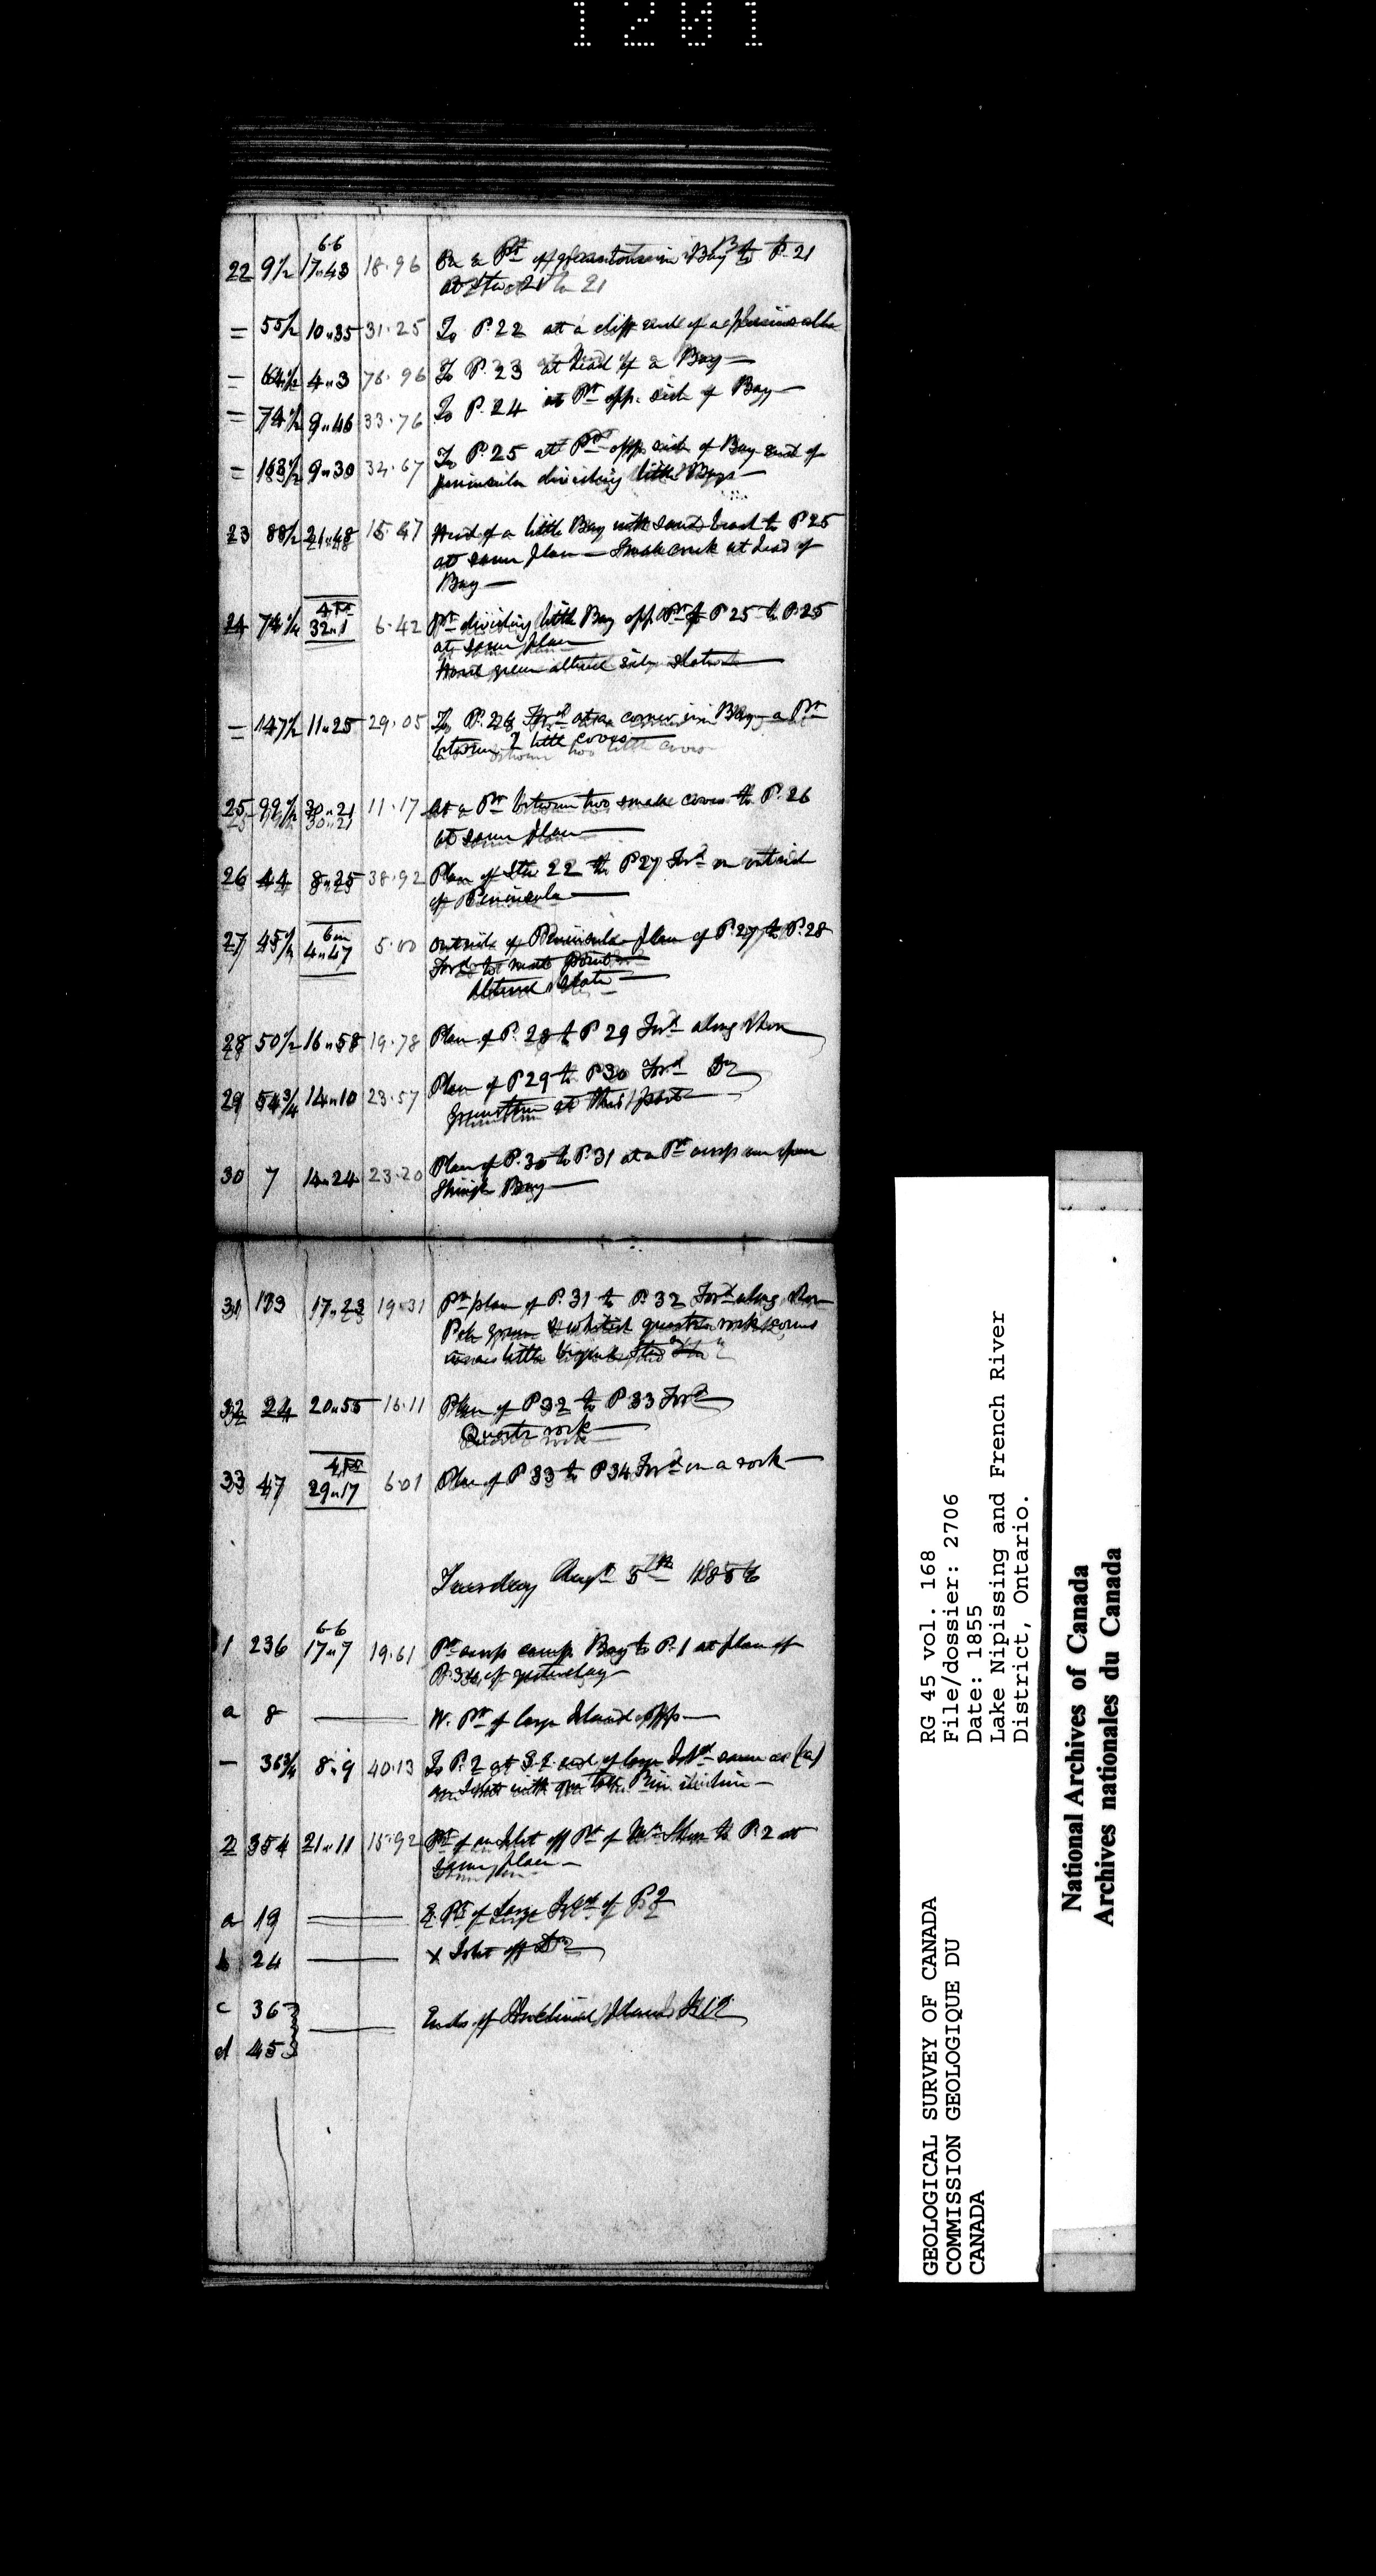 1201
6.6
22 9½ 17.43 18.96 On a Pt of greenstone in Bay to P. 21
at Stn 21
= 55½ 10.35 31.25 To P. 22 at a cliff end of a peninsula
= 64½ 4.3 76.96 To P. 23 at head of a Bay —
= 74½ 9.46 33.76 To P. 24 at Pt opp. side of Bay —
= 163½ 9.30 32.67 To P. 25 at Pt opp side of Bay end of
peninsula dividing little Bays —
23 88½ 21.48 15.47 Head of a little Bay with sand beach to P 25
at same place — Small creek at head of
Bay —
4 Ft
24 74¼ 32.1 6.42 Pt dividing little Bay opp Pt of P 25 to P. 25
at same place
Hard green altered slate
= 147½ 11.25 29.05 To P. 26 Ford at a corner in Bay — a Pt
between 2 little coves —
25 99½ 30.21 11.17 At a Pt between two small coves to P. 26
at same place —
26 44 8.25 38.92 Place of Stn 22 to P 27 Ford on outside
of Peninsula —
6 in
27 45½ 4.47 5.00 Outside of Peninsula place of P. 27 to P. 28
Ford to next point —
Altered slate —
28 50½ 16.58 19.78 Place of P. 28 to P 29 Ford along shore
29 54¾ 14.10 23.57 Place of P 29 to P 30 Ford Do
Greenstone at this part —
30 7 14.24 23.20 Place of P. 30 to P. 31 at a Pt across an open
Shingle Bay —
31 139 17.23 19.31 Pt place of P. 31 to P. 32 Ford along shore
Pale green & whitish quartz rock
32 24 20.55 16.11 Place of P 32 to P 33 Ford
Quartz rock —
4 Ft
33 47 29.17 6.01 Place of P 33 to P 34 Ford on a rock —
Tuesday Augt 5th 1856
6.6
1 236 17.7 19.61 Pt across camp Bay to P. 1 at place of
P. 34 of yesterday —
a 8 — W. Pt of large Island opp —
— 36¾ 8.9 40.13 To P. 2 at S.E. end of large Isld same as (a)
2 354 21.11 15.92 Pt of an Islet off Pt of Mn Shore to P. 2 at
same place —
a 19 = E. Pt of large Isld of P. 2
b 24 — x Islet off Do
c 36 } — Ends of Island
d 45 }
GEOLOGICAL SURVEY OF CANADA
COMMISSION GEOLOGIQUE DU
CANADA
RG 45 vol. 168
File/dossier: 2706
Date: 1855
Lake Nipissing and French River
District, Ontario.
National Archives of Canada
Archives nationales du Canada